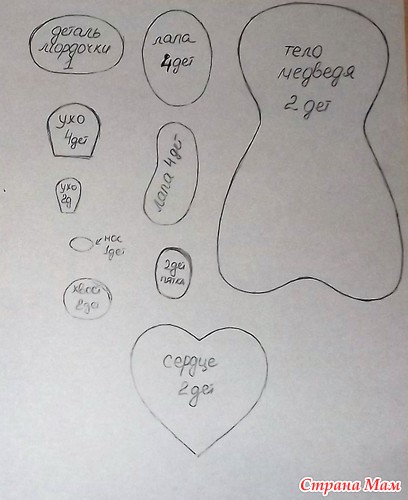 деталь
мордочки
1
лапа
4дет
тело
медведя
2 дет
ухо
4дет
лапа 4дет
ухо
2д
нос
1дет
2дет
пятка
хвост
2дет
сердце
2дет
Страна Мам